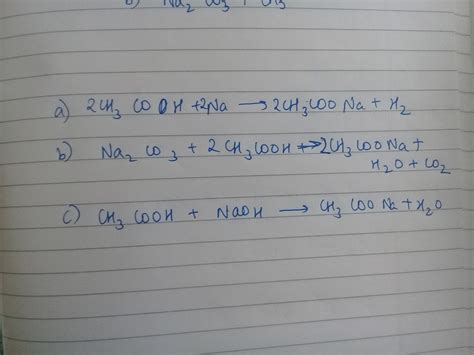 b) Na2 CO3 +
a) 2CH3 COOH +2Na → 2CH3COO Na + H2
b) Na2 CO3 + 2 CH3COOH → 2CH3COONa +
H2O + CO2
c) CH3 COOH + NaOH → CH3 COO Na + H2O